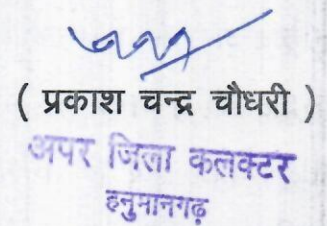 ( प्रकाश चन्द्र चौधरी )
अपर जिला कलक्टर
हनुमानगढ़